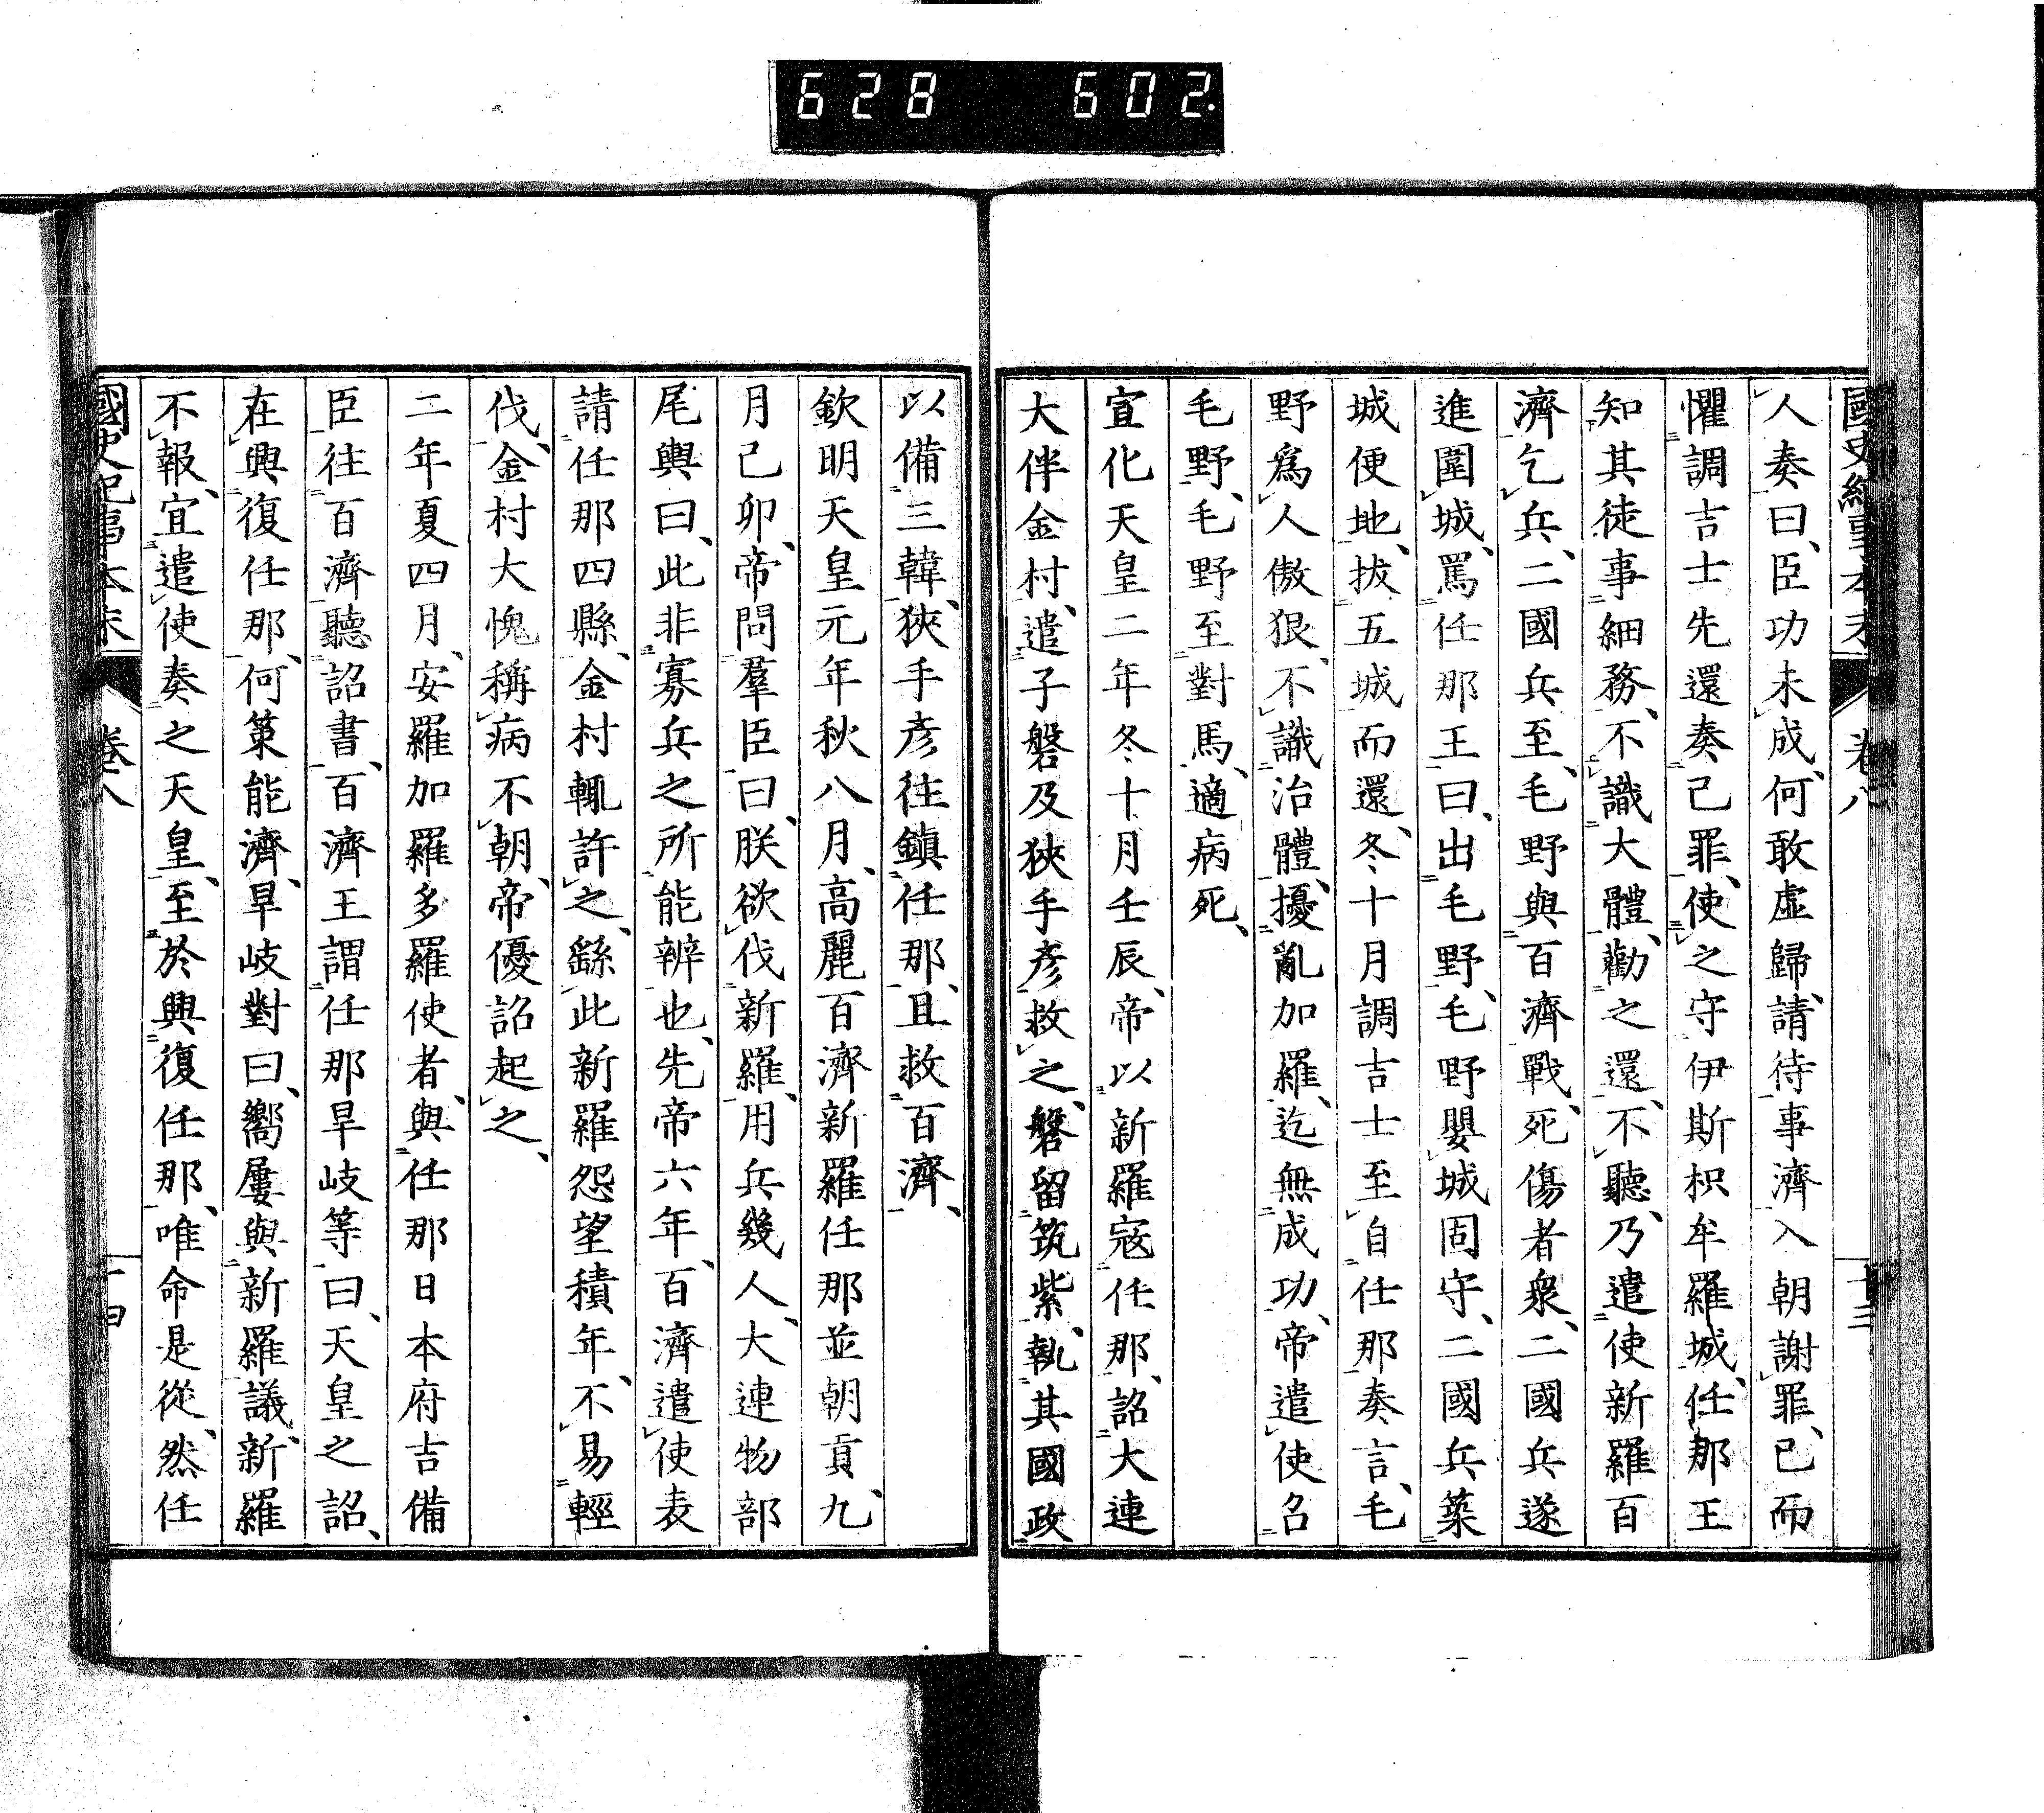 628 602.
人奏曰、臣功未成、何敢虛歸、請待事濟入朝謝罪、已而
懼調吉士先還奏己罪、使之守伊斯枳牟羅城、任那王
知其徒事細務、不識大體、勸之還、不聽、乃遣使新羅百
濟乞兵、二國兵至、毛野與百濟戰、死傷者衆、二國兵遂
進圍城、罵任那王曰、出毛野、毛野嬰城固守、二國兵築
城便地、拔五城而還、冬十月調吉士至自任那奏言、毛
野爲人傲狠、不識治體、擾亂加羅、迄無成功、帝遣使召
毛野、毛野至對馬、適病死、
宣化天皇二年冬十月壬辰、帝以新羅寇任那、詔大連
大伴金村、遣子磐及狹手彥救之、磐留筑紫、執其國政
以備三韓、狹手彥往鎭任那、且救百濟、
欽明天皇元年秋八月、高麗百濟新羅任那並朝貢、九
月己卯、帝問羣臣曰、朕欲伐新羅、用兵幾人、大連物部
尾輿曰、此非寡兵之所能辨也、先帝六年、百濟遣使表
請任那四縣、金村輒許之、繇此新羅怨望積年、不易輕
伐、金村大愧稱病不朝、帝優詔起之、
二年夏四月、安羅加羅多羅使者、與任那日本府吉備
臣往百濟聽詔書、百濟王謂任那旱岐等曰、天皇之詔、
在興復任那、何策能濟、旱岐對曰、嚮屢與新羅議、新羅
不報、宜遣使奏之天皇、至於興復任那、唯命是從、然任
國史紀事本末 卷八 十四